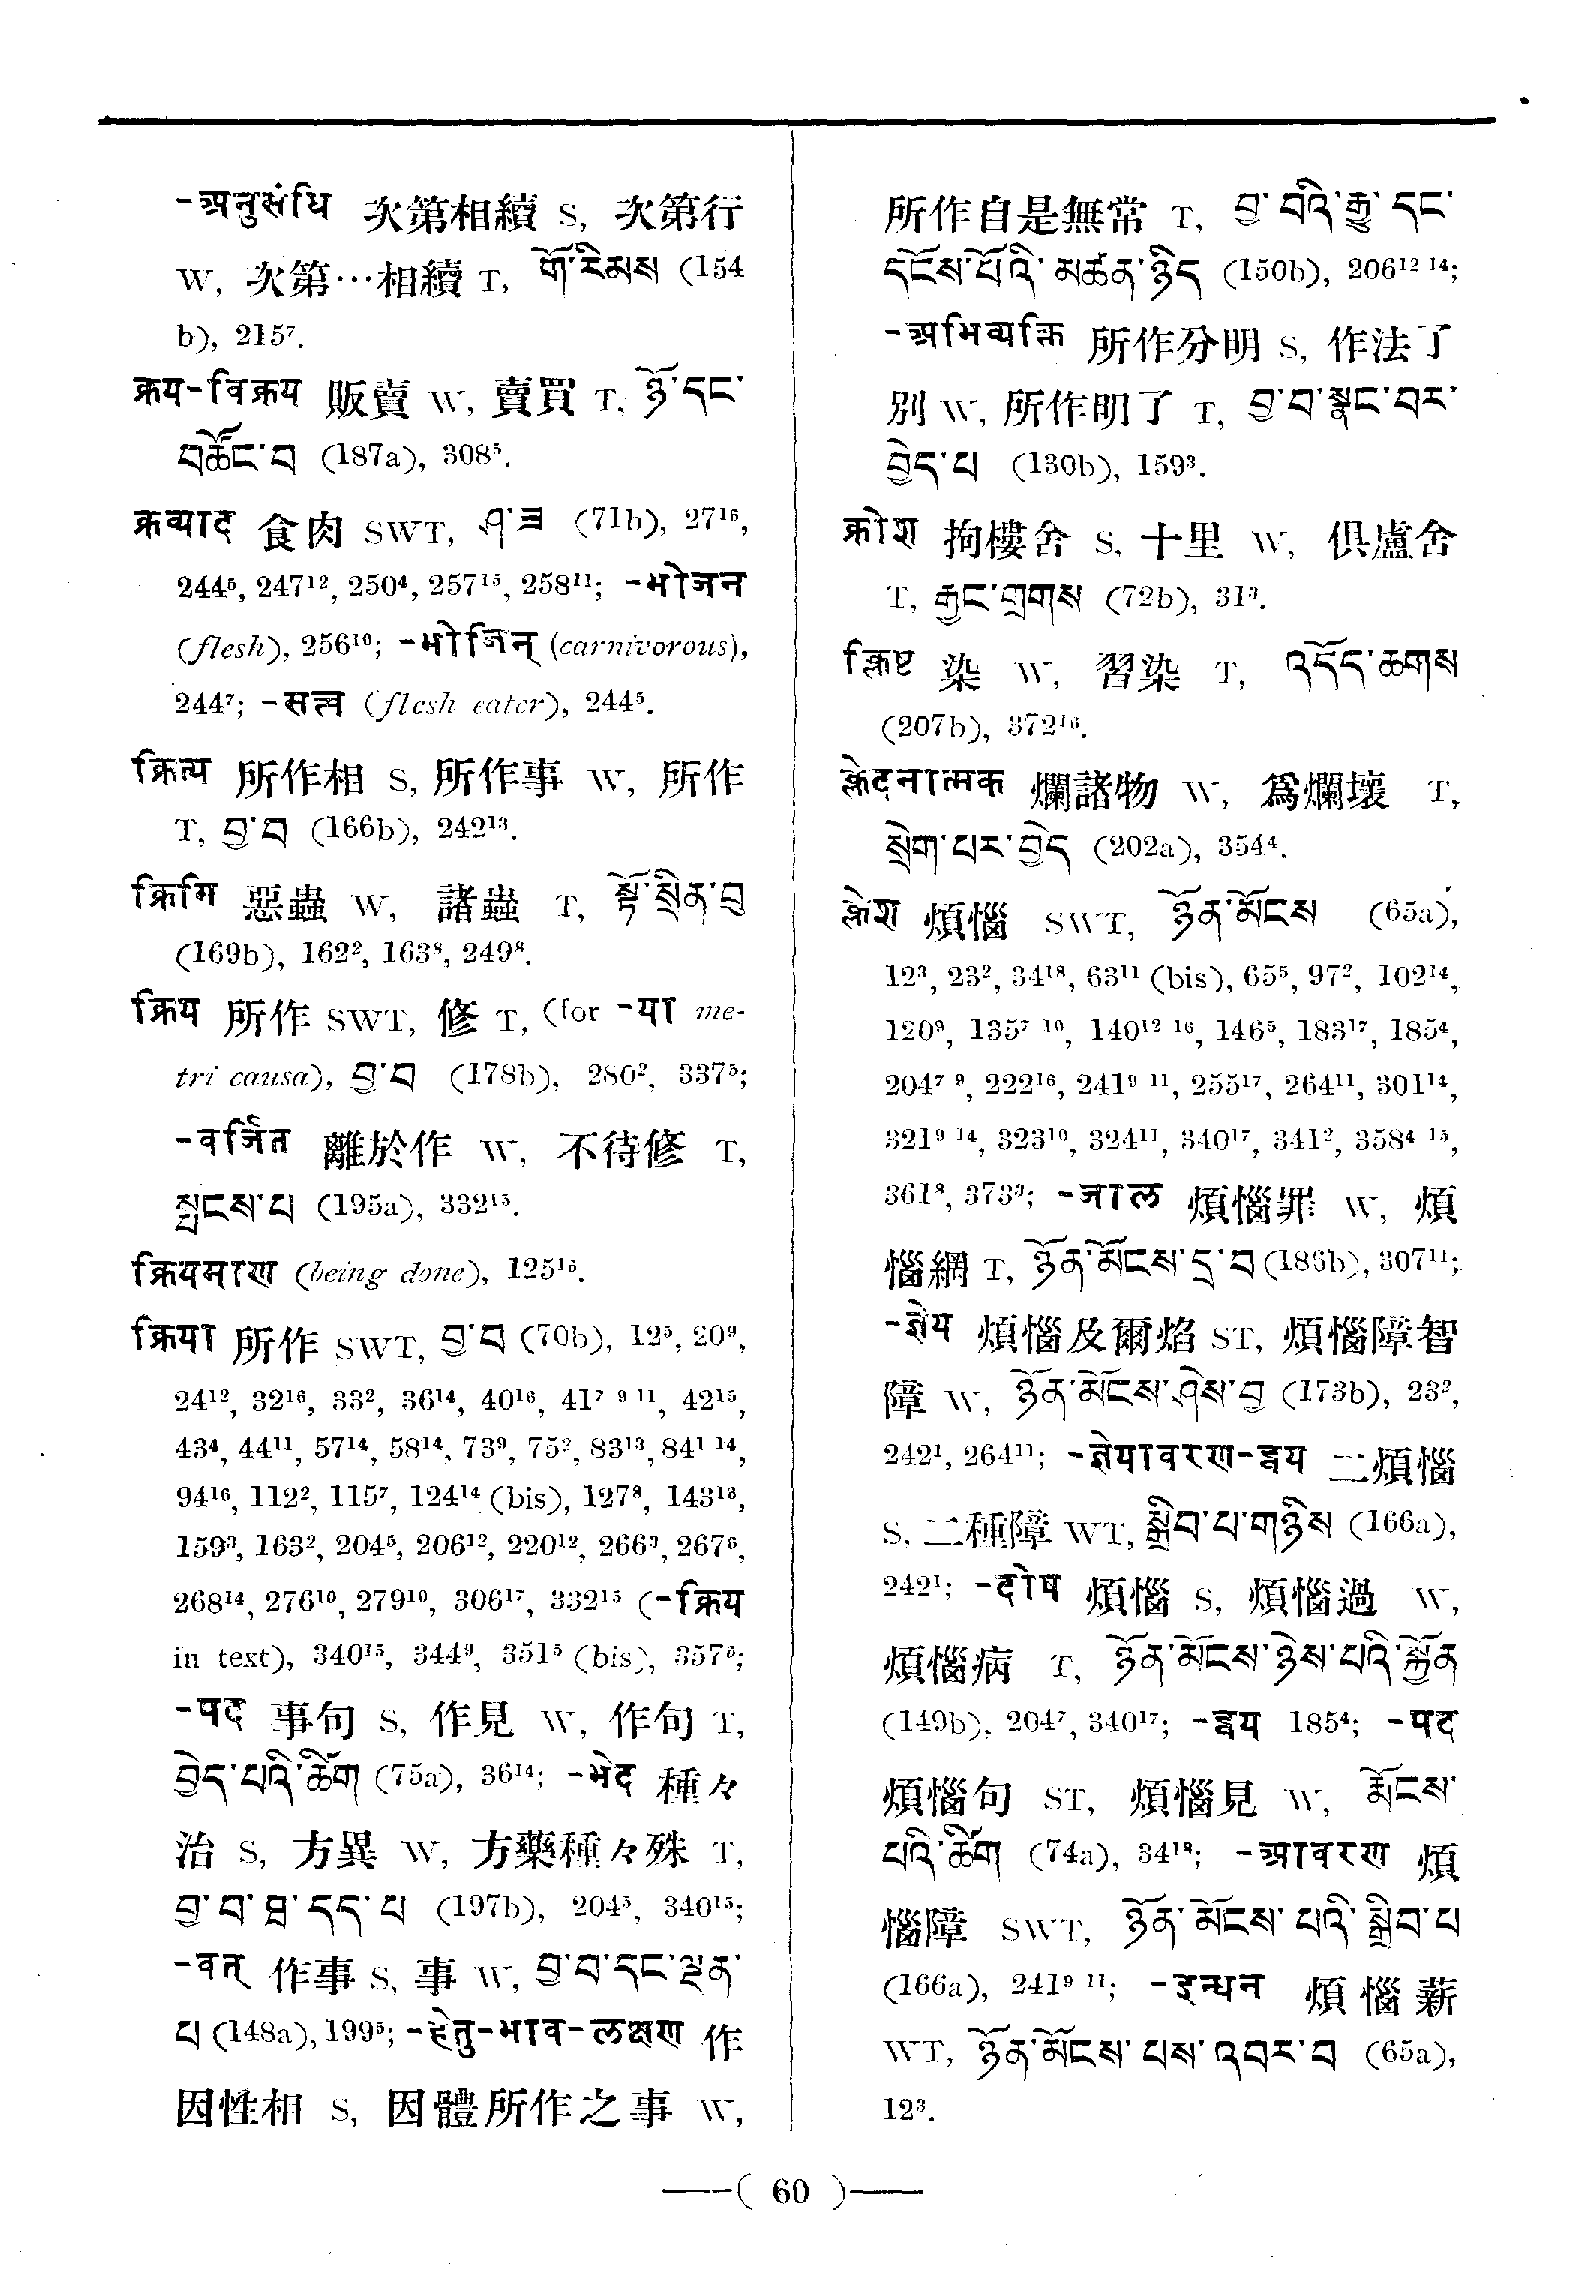 -अनुसंधि 次第相續 S, 次第行
W, 次第…相續 T, གོ་རིམས (154
b), 215⁷.
क्रय-विक्रय 販賣 W, 賣買 T, ཉོ་དང་
བཚོང་བ (187a), 308⁵.
क्रव्याद 食肉 SWT, ཤ་ཟ (71b), 27¹⁶,
244⁵, 247¹², 250⁴, 257¹⁵, 258¹¹; -भोजन
(flesh), 256¹⁰; -भोजिन् (carnivorous),
244⁷; -सत्त्व (flesh eater), 244⁵.
क्रित्य 所作相 S, 所作事 W, 所作
T, བྱ་བ (166b), 242¹³.
क्रिमि 惡蟲 W, 諸蟲 T, སྟོ་སྲིན་བུ
(169b), 162², 163⁸, 249⁸.
क्रिय 所作 SWT, 修 T, (for -या me-
tri causa), བྱ་བ (178b), 280², 337⁵;
-वर्जित 離於作 W, 不待修 T,
སྤངས་པ (195a), 332¹⁵.
क्रियमाण (being done), 125¹⁶.
क्रिया 所作 SWT, བྱ་བ (70b), 12⁵, 20⁹,
24¹², 32¹⁶, 33², 36¹⁴, 40¹⁶, 41⁷ ⁹ ¹¹, 42¹⁵,
43⁴, 44¹¹, 57¹⁴, 58¹⁴, 73⁹, 75², 83¹³, 84¹ ¹⁴,
94¹⁶, 112², 115⁷, 124¹⁴ (bis), 127⁸, 143¹⁸,
159³, 163², 204⁵, 206¹², 220¹², 266³, 267⁶,
268¹⁴, 276¹⁰, 279¹⁰, 306¹⁷, 332¹⁵ (-क्रिय
in text), 340¹⁵, 344⁹, 351⁵ (bis), 357⁵;
-पद 事句 S, 作見 W, 作句 T,
བྱེད་པའི་ཚིག (75a), 36¹⁴; -भेद 種々
治 S, 方異 W, 方藥種々殊 T,
བྱ་བ་ཐ་དད་པ (197b), 204⁵, 340¹⁵;
-वत् 作事 S, 事 W, བྱ་བ་དང་ལྡན་
པ (148a), 199⁵; -हेतु-भाव-लक्षण 作
因性相 S, 因體所作之事 W,
所作自是無常 T, བྱ་བའི་རྒྱུ་དང་
དངོས་པོའི་མཚན་ཉིད (150b), 206¹² ¹⁴;
-अभिव्यक्ति 所作分明 S, 作法了
別 W, 所作明了 T, བྱ་བ་སྣང་བར་
བྱེད་པ (130b), 159³.
क्रोश 拘樓舍 S, 十里 W, 俱盧舍
T, རྒྱང་གྲགས (72b), 31³.
क्लिष्ट 染 W, 習染 T, འདོད་ཆགས
(207b), 372¹⁶.
क्लेदनात्मक 爛諸物 W, 為爛壞 T,
སྲེག་པར་བྱེད (202a), 354⁴.
क्लेश 煩惱 SWT, ཉོན་མོངས (65a),
12³, 23², 34¹⁸, 63¹¹ (bis), 65⁵, 97², 102¹⁴,
120⁹, 135⁷ ¹⁰, 140¹² ¹⁶, 146⁵, 183¹⁷, 185⁴,
204⁷ ⁹, 222¹⁶, 241⁹ ¹¹, 255¹⁷, 264¹¹, 301¹⁴,
321⁹ ¹⁴, 323¹⁰, 324¹¹, 340¹⁷, 341², 358⁴ ¹⁵,
361⁸, 373⁹; -जाल 煩惱罪 W, 煩
惱網 T, ཉོན་མོངས་དྲ་བ (186b), 307¹¹;
-ज्ञेय 煩惱及爾焰 ST, 煩惱障智
障 W, ཉོན་མོངས་ཤེས་བྱ (173b), 23²,
242¹, 264¹¹; -ज्ञेयावरण-द्वय 二煩惱
S, 二種障 WT, སྒྲིབ་པ་གཉིས (166a),
242¹; -दोष 煩惱 S, 煩惱過 W,
煩惱病 T, ཉོན་མོངས་ཉེས་པའི་སྐྱོན
(149b), 204⁷, 340¹⁷; -द्वय 185⁴; -पद
煩惱句 ST, 煩惱見 W, རྨོངས་
པའི་ཚིག (74a), 34¹⁸; -आवरण 煩
惱障 SWT, ཉོན་མོངས་པའི་སྒྲིབ་པ
(166a), 241⁹ ¹¹; -इन्धन 煩惱薪
WT, ཉོན་མོངས་པས་འབར་བ (65a),
12³.
—( 60 )—